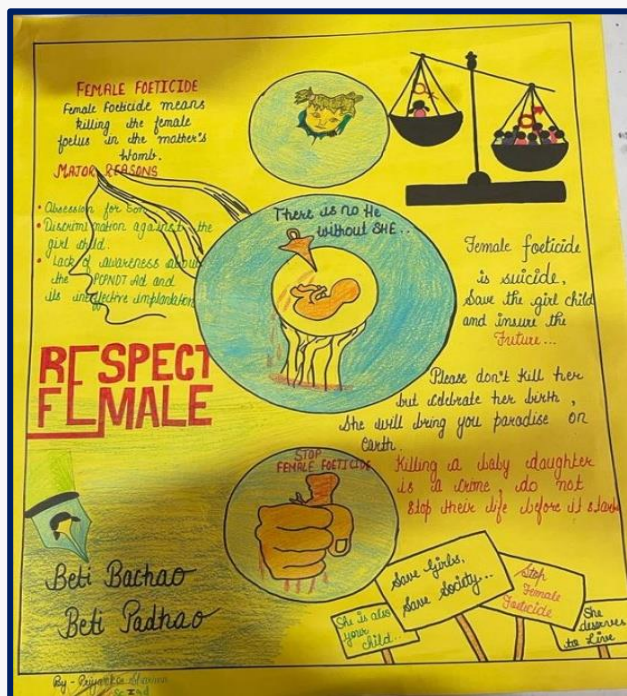 FEMALE FOETICIDE
Female Foeticide means
killing the female
foetus in the mother's
Womb.
MAJOR REASONS
• Obsession for Son.
• Discrimination against the
girl child.
• Lack of awareness about
the PCPNDT Act and
its ineffective implantation
There is no He
without SHE..
Female foeticide
is suicide,
Save the girl child
and insure the
Future...
RESPECT
FEMALE
Please don't kill her
but celebrate her birth,
She will bring you paradise on
Earth.
STOP
FEMALE FOETICIDE
Killing a baby daughter
is a crime do not
stop their life before it starts
Beti Bachao
Beti Padhao
She is also
your
child...
Save Girls,
Save Society...
Stop
Female
Foeticide
She
deserves
to Live
By - Priyanka Sharma